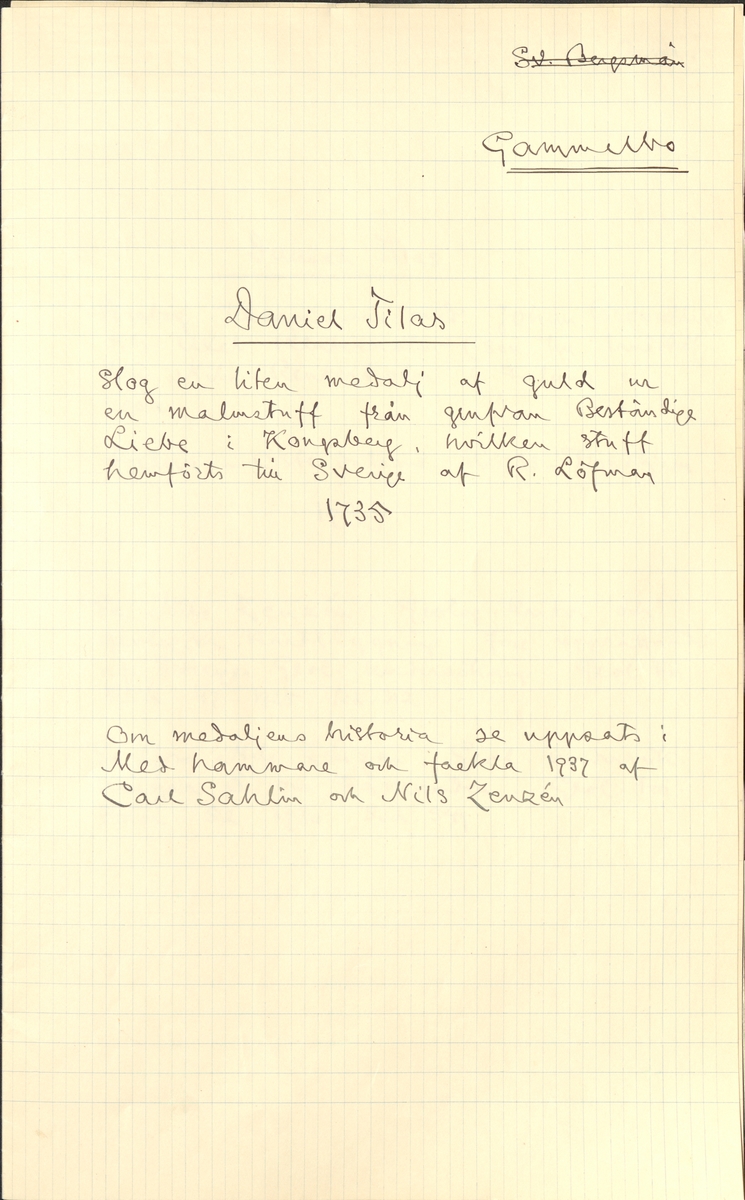 Sv. Bergsmän
Gammelbo
Daniel Tilas
slog en liten medalj af guld ur
en malmstuff från grufvan Beständige
Liebe i Kongsberg, hvilken stuff
hemförts till Sverige af R. Löfman
1735
Om medaljens historia se uppsats i
Med hammare och fackla 1937 af
Carl Sahlin och Nils Zenzén